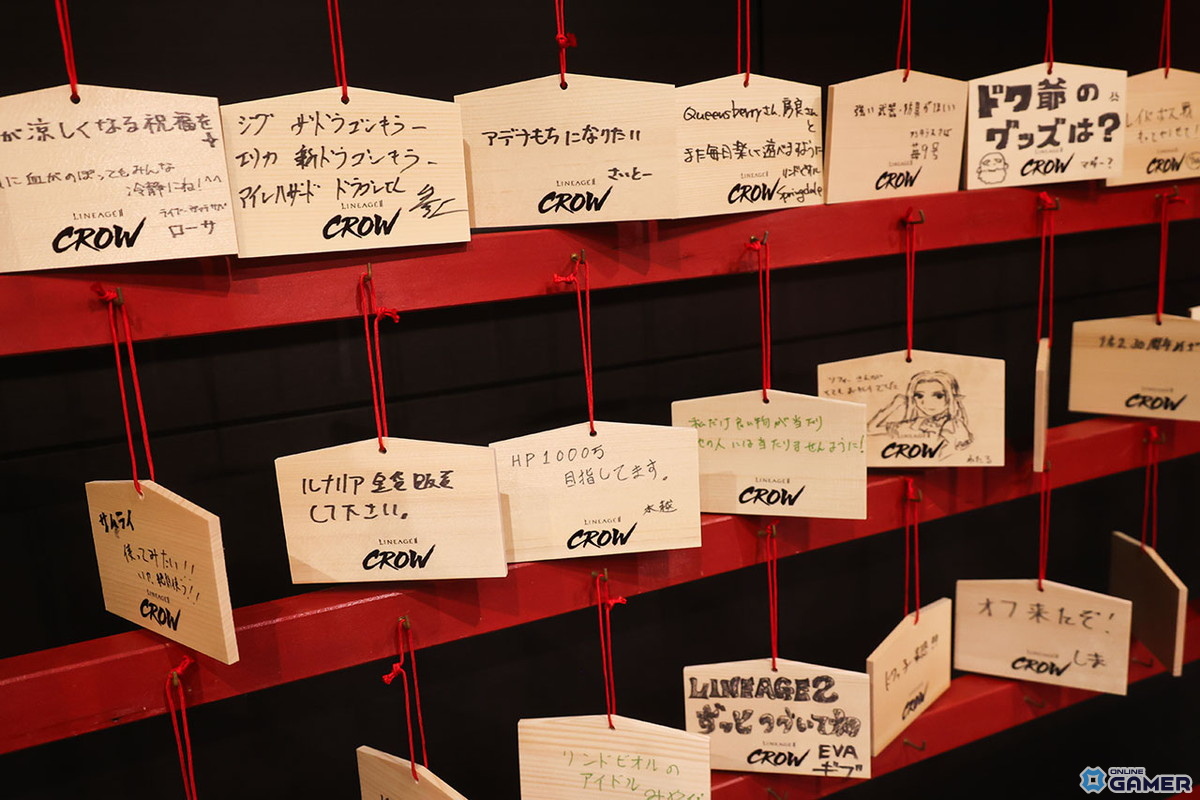 が涼しくなる祝福を
に血がのぼってもみんな
冷静にね!^^
ローサ
LINEAGE II
CROW
ジグ ザドラゴンキラー
エリカ 新ドラゴンキラー
アイレハザード
LINEAGE II
CROW
アデナもちになりたい
さいとー
LINEAGE II
CROW
Queensberryさん
と
毎日楽しく遊べますように
LINEAGE II
CROW
Springdale
強い武器・防具がほしい
苺9号
LINEAGE II
CROW
ドワ爺の
グッズは?
LINEAGE II
CROW
レイドボス戦
LINEAGE II
CROW
サムライ
使ってみたい!!
LINEAGE II
CROW
ルナリア
して下さい。
LINEAGE II
CROW
HP1000万
目指してます。
水越
LINEAGE II
CROW
私だけ良い物が当たり
の人には当たりませんように!
LINEAGE II
CROW
LINEAGE II
CROW
わたる
リネ2 20周年
LINEAGE II
CROW
CROW
オフ来たぞ!
しま
LINEAGE II
CROW
LINEAGE2
ずっとつづいてね
LINEAGE II
CROW
EVA
ギブ
リンドビオルの
アイドル
ONLINE
GAMER